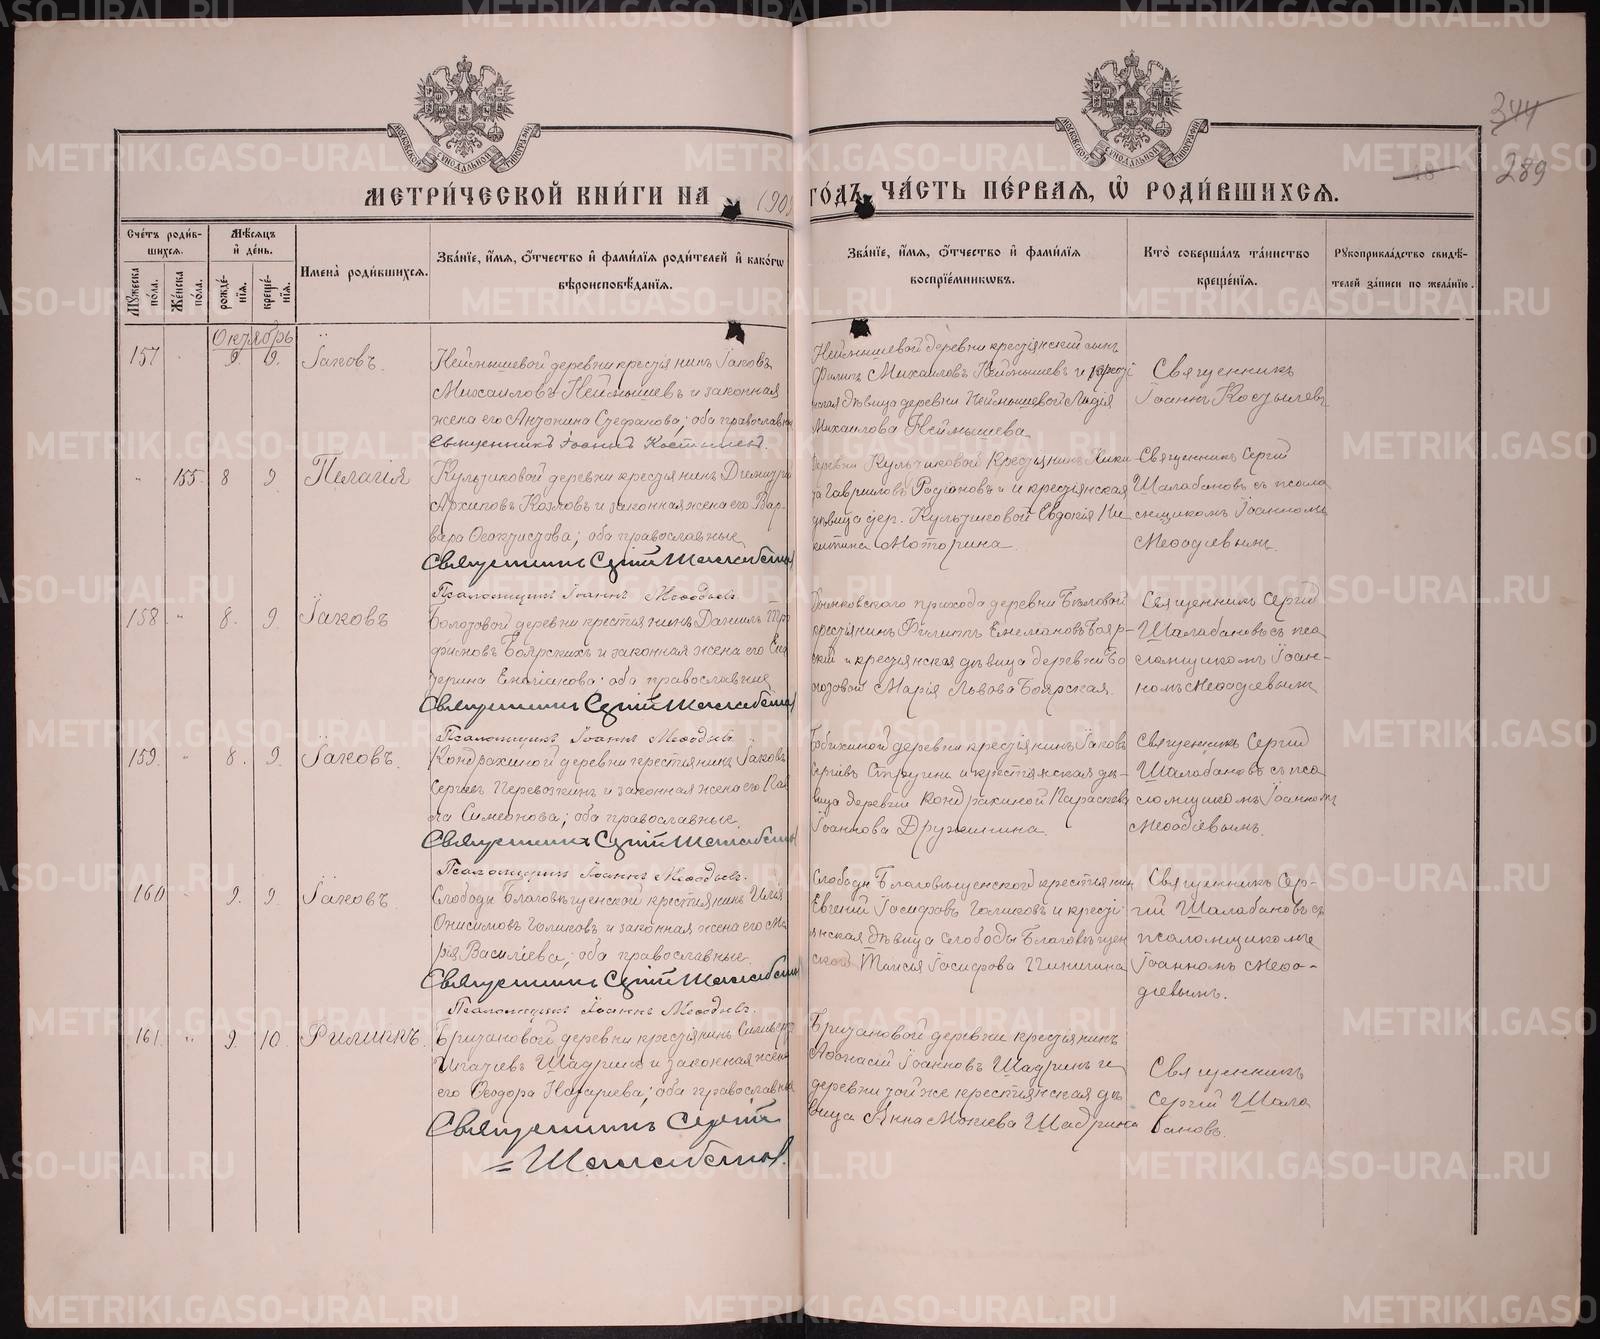 344
289
18
МОСКОВСКОЙ СѴНОДАЛЬНОЙ ТИПОГРАФІИ
МОСКОВСКОЙ СѴНОДАЛЬНОЙ ТИПОГРАФІИ
МЕТРИ́ЧЕСКОЙ КНИ́ГИ НА 190 ГО́ДЪ, ЧА́СТЬ ПЕ́РВАЯ, Ѡ҆ РОДИ́ВШИХСЯ.
Счётъ роди́вшихся.
Мꙋ́жеска по́ла.
Же́нска по́ла.
Мѣ́сяцъ и҆ де́нь.
рожде́нїя.
креще́нїя.
Имена̀ роди́вшихся.
Зва́нїе, и҆́мя, ѻ҆́тчество и҆ фами́лїя роди́телей и҆ како́гѡ вѣроисповѣ́данїя.
Зва́нїе, и҆́мя, ѻ҆́тчество и҆ фами́лїя воспрїе́мникѡвъ.
Кто̀ соверша́лъ та́инство креще́нїя.
Рꙋкоприкла́дство свидѣ́телей за́писи по жела́нїю.
Октябрь
157 9. 9. Іаковъ.
Неймышевой деревни крестьянинъ Іаковъ
Михаиловъ Неймышевъ и законная
жена его Антонина Стефанова; оба православны
Священникъ Іоаннъ Костылевъ.
Неймышевой деревни крестьянскій сынъ
Филиппъ Михаиловъ Неймышевъ и крестья
нская дѣвица деревни Неймышевой Лидія
Михаилова Неймышева
Священникъ
Іоаннъ Костылевъ
" 155 8 9. Пелагія
Культиковой деревни крестьянинъ Димитрій
Архиповъ Козловъ и законная жена его Вар-
вара Феоктистова; оба православные
Священникъ Сергій Шалабановъ
Псаломщикъ Іоаннъ Меѳодьевъ.
деревни Культиковой крестьянинъ Ники
та Гавриловъ Родіоновъ и крестьянская
дѣвица дер. Культиковой Евдокія Ни
китина Моторина
Священникъ Сергій
Шалабановъ съ псало
мщикомъ Іоанномъ
Меѳодіевымъ.
158 " 8. 9. Іаковъ
Болотовой деревни крестьянинъ Даніилъ Тро
фимовъ Боярскихъ и законная жена его Ека
терина; оба православные
Священникъ Сергій Шалабановъ
Псаломщикъ Іоаннъ Меѳодьевъ.
прихода деревни Бѣловой
крестьянинъ Филиппъ Бояр-
скій и крестьянская дѣвица деревни Бо
лотовой Марія Львова Боярская.
Священникъ Сергій
Шалабановъ съ пса
ломщикомъ Іоан-
номъ Меѳодіевымъ
159. " 8. 9. Іаковъ.
Кондрахиной деревни крестьянинъ Іаковъ
Сергіевъ Перевозкинъ и законная жена его
Симеонова; оба православные.
Священникъ Сергій Шалабановъ
Псаломщикъ Іоаннъ Меѳодьевъ.
Бобихиной деревни крестьянинъ Іаковъ
Сергіевъ и крестьянская дѣ-
вица деревни Кондрахиной Параскева
Іоаннова Дружинина.
Священникъ Сергій
Шалабановъ съ пса
ломщикомъ Іоанномъ
Меѳодіевымъ.
160 " 9. 9 Іаковъ.
Слободы Благовѣщенской крестьянинъ Илія
Онисимовъ Голиковъ и законная жена его Ма
рія Василіева; оба православные.
Священникъ Сергій Шалабановъ
Псаломщикъ Іоаннъ Меѳодьевъ.
Слободы Благовѣщенской крестьянин
Евгеній Іосифовъ Голиковъ и кресть
янская дѣвица Слободы Благовѣщен
ской Таисія Іосифова Пинигина
Священникъ Сер-
гій Шалабановъ съ
псаломщикомъ
Іоанномъ Меѳо-
діевымъ.
161. " 9. 10. Филиппъ.
Бризановой деревни крестьянинъ Сильвестр
Игнатіевъ Шадринъ и законная жена
его Ѳеодора Назариева; оба православны
Священникъ Сергій
Шалабановъ.
Бризановой деревни крестьянинъ
Аѳанасій Іоанновъ Шадринъ и
деревни той же крестьянская дѣ
вица Анна Шадрина
Священникъ
Сергій Шала
бановъ.
METRIKI.GASO-URAL.RU